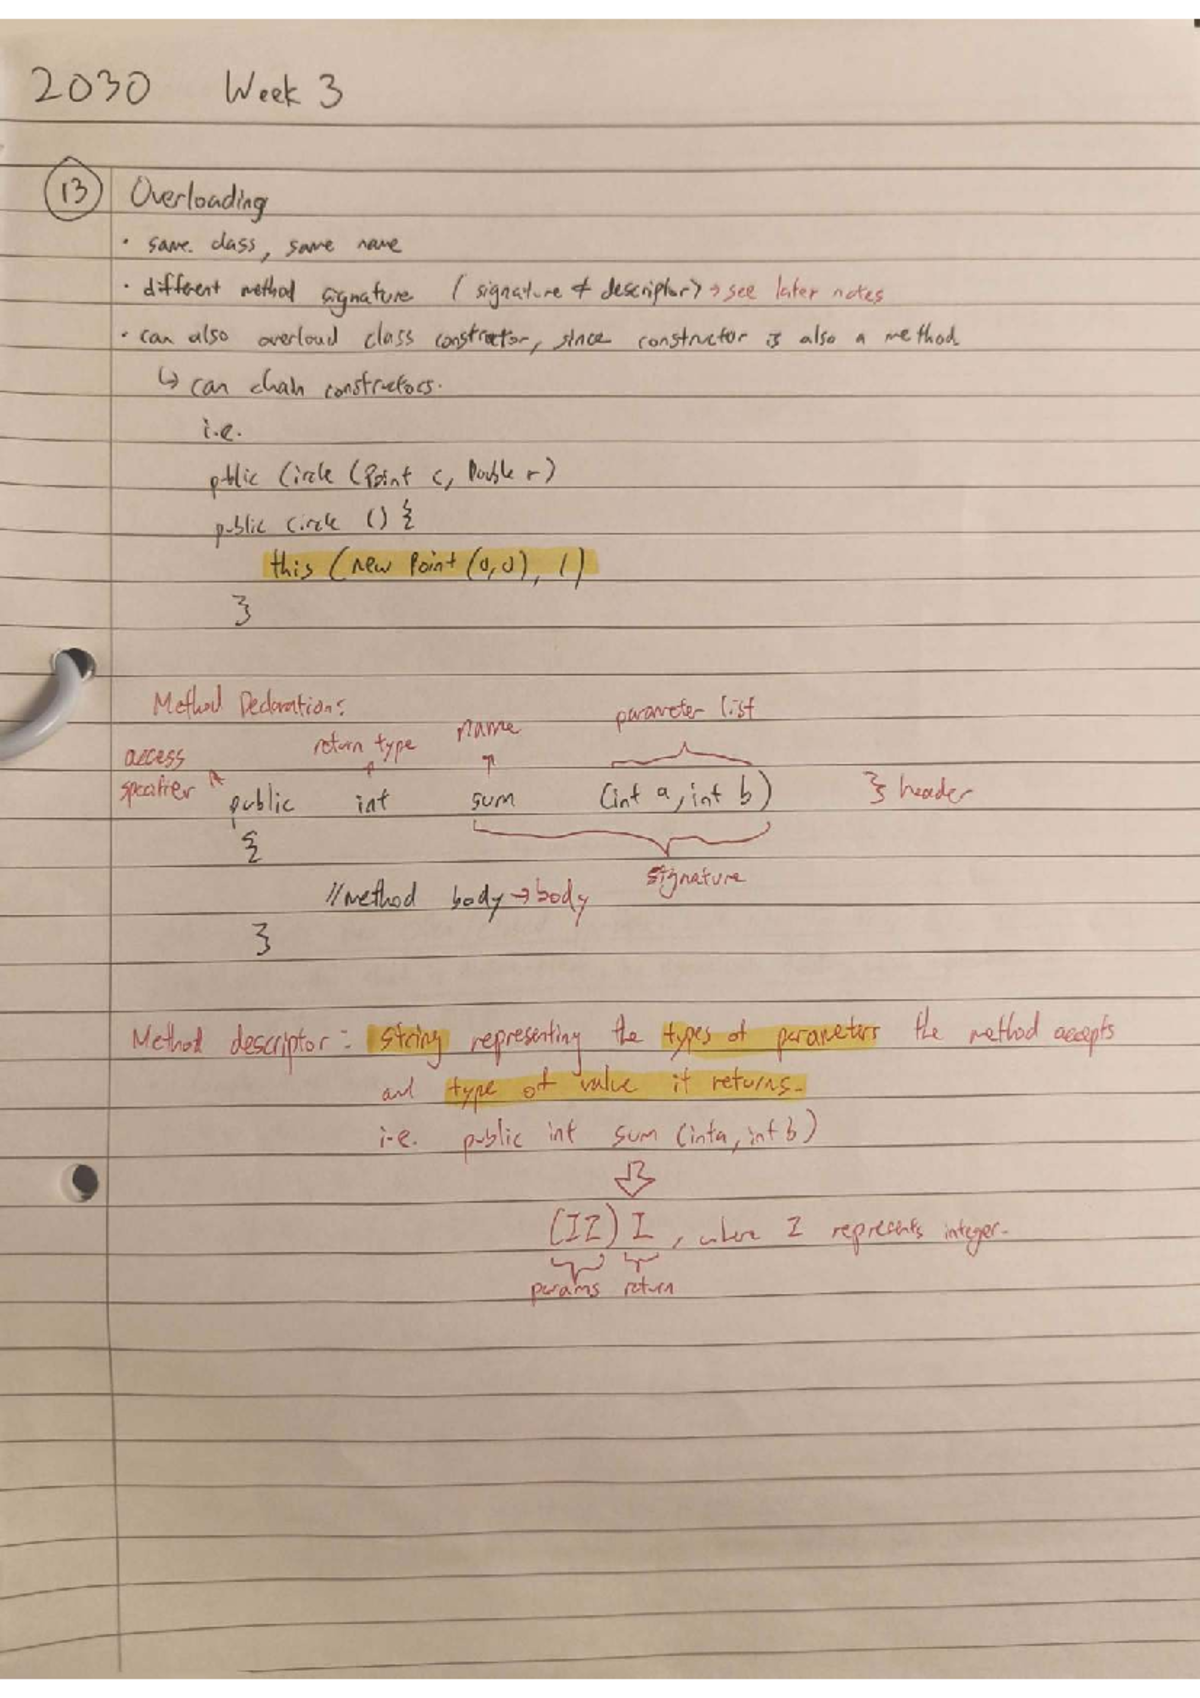 2030 Week 3
13 Overloading
• same class, same name
• different method signature (signature ≠ descriptor) → see later notes
• can also overload class constructor, since constructor is also a method
↳ can chain constructors.
i.e.
public Circle (Point c, Double r)
public Circle () {
this (new Point (0,0), 1)
}
Method Declarations:
access specifier
return type
name
parameter list
public int sum (int a, int b) } header
{
signature
// method body → body
}
Method descriptor: string representing the types of parameters the method accepts
and type of value it returns.
i.e. public int sum (int a, int b)
⇓
(II) I, where I represents integer.
params return